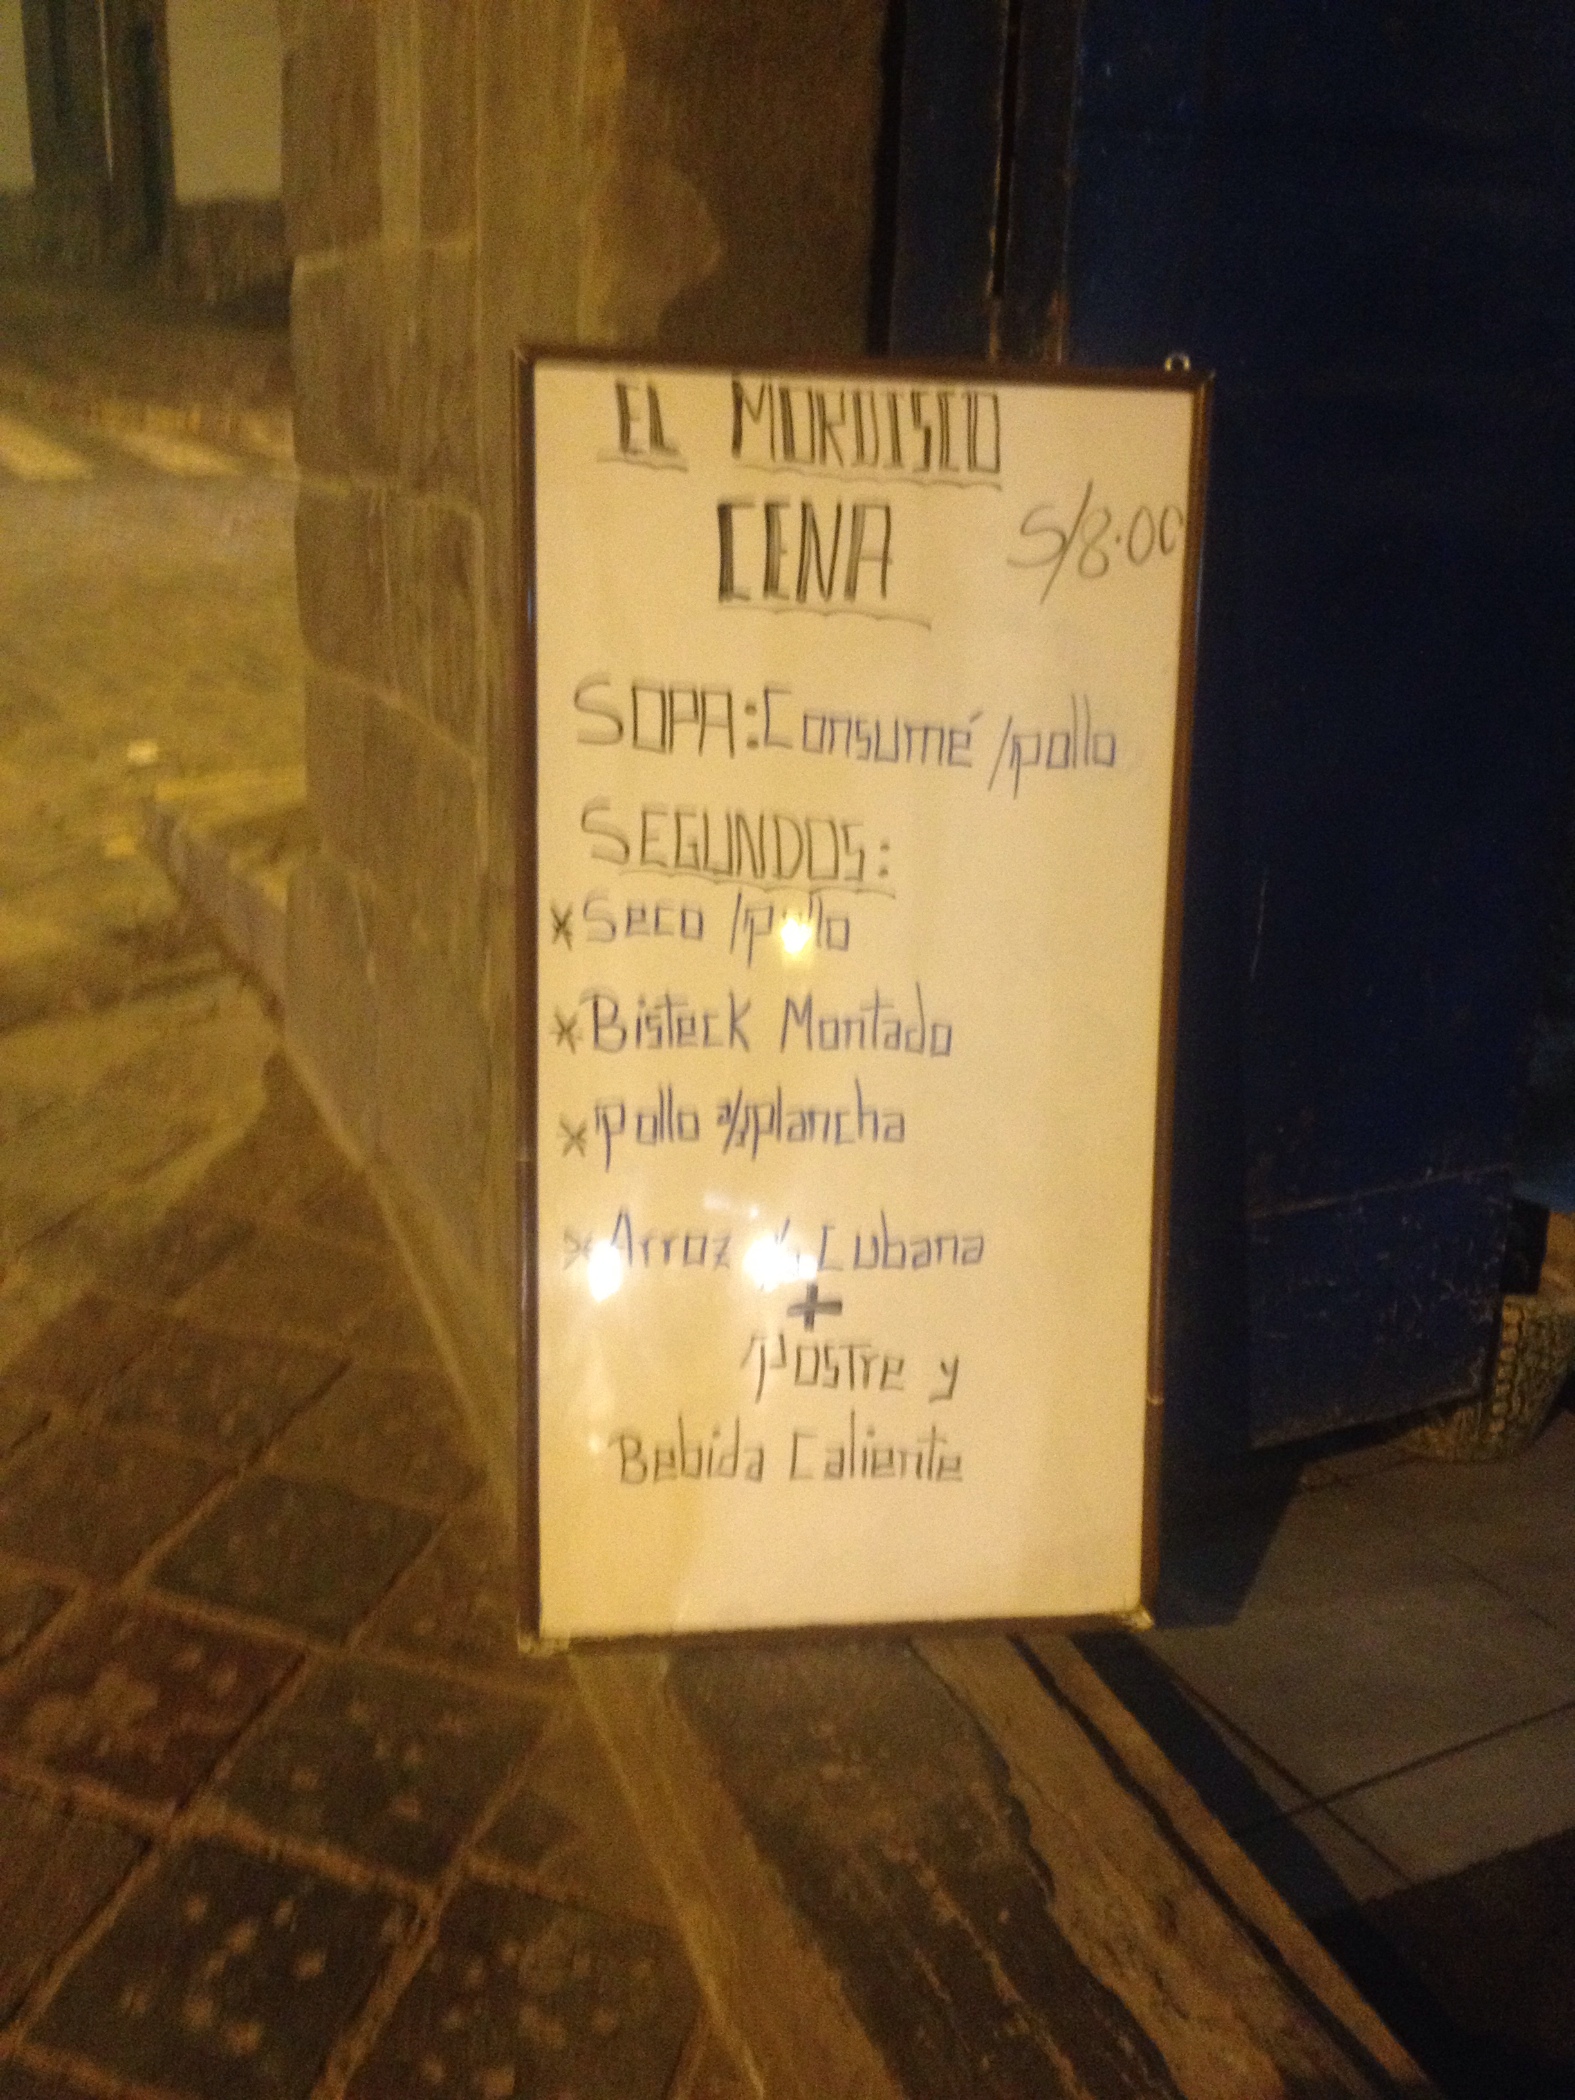 EL MORDISCO
CENA S/8.00
SOPA: Consumé /pollo
SEGUNDOS:
* Seco /pollo
* Bisteck Montado
* Pollo a/plancha
* Arroz Cubana
+
Postre y
Bebida Caliente